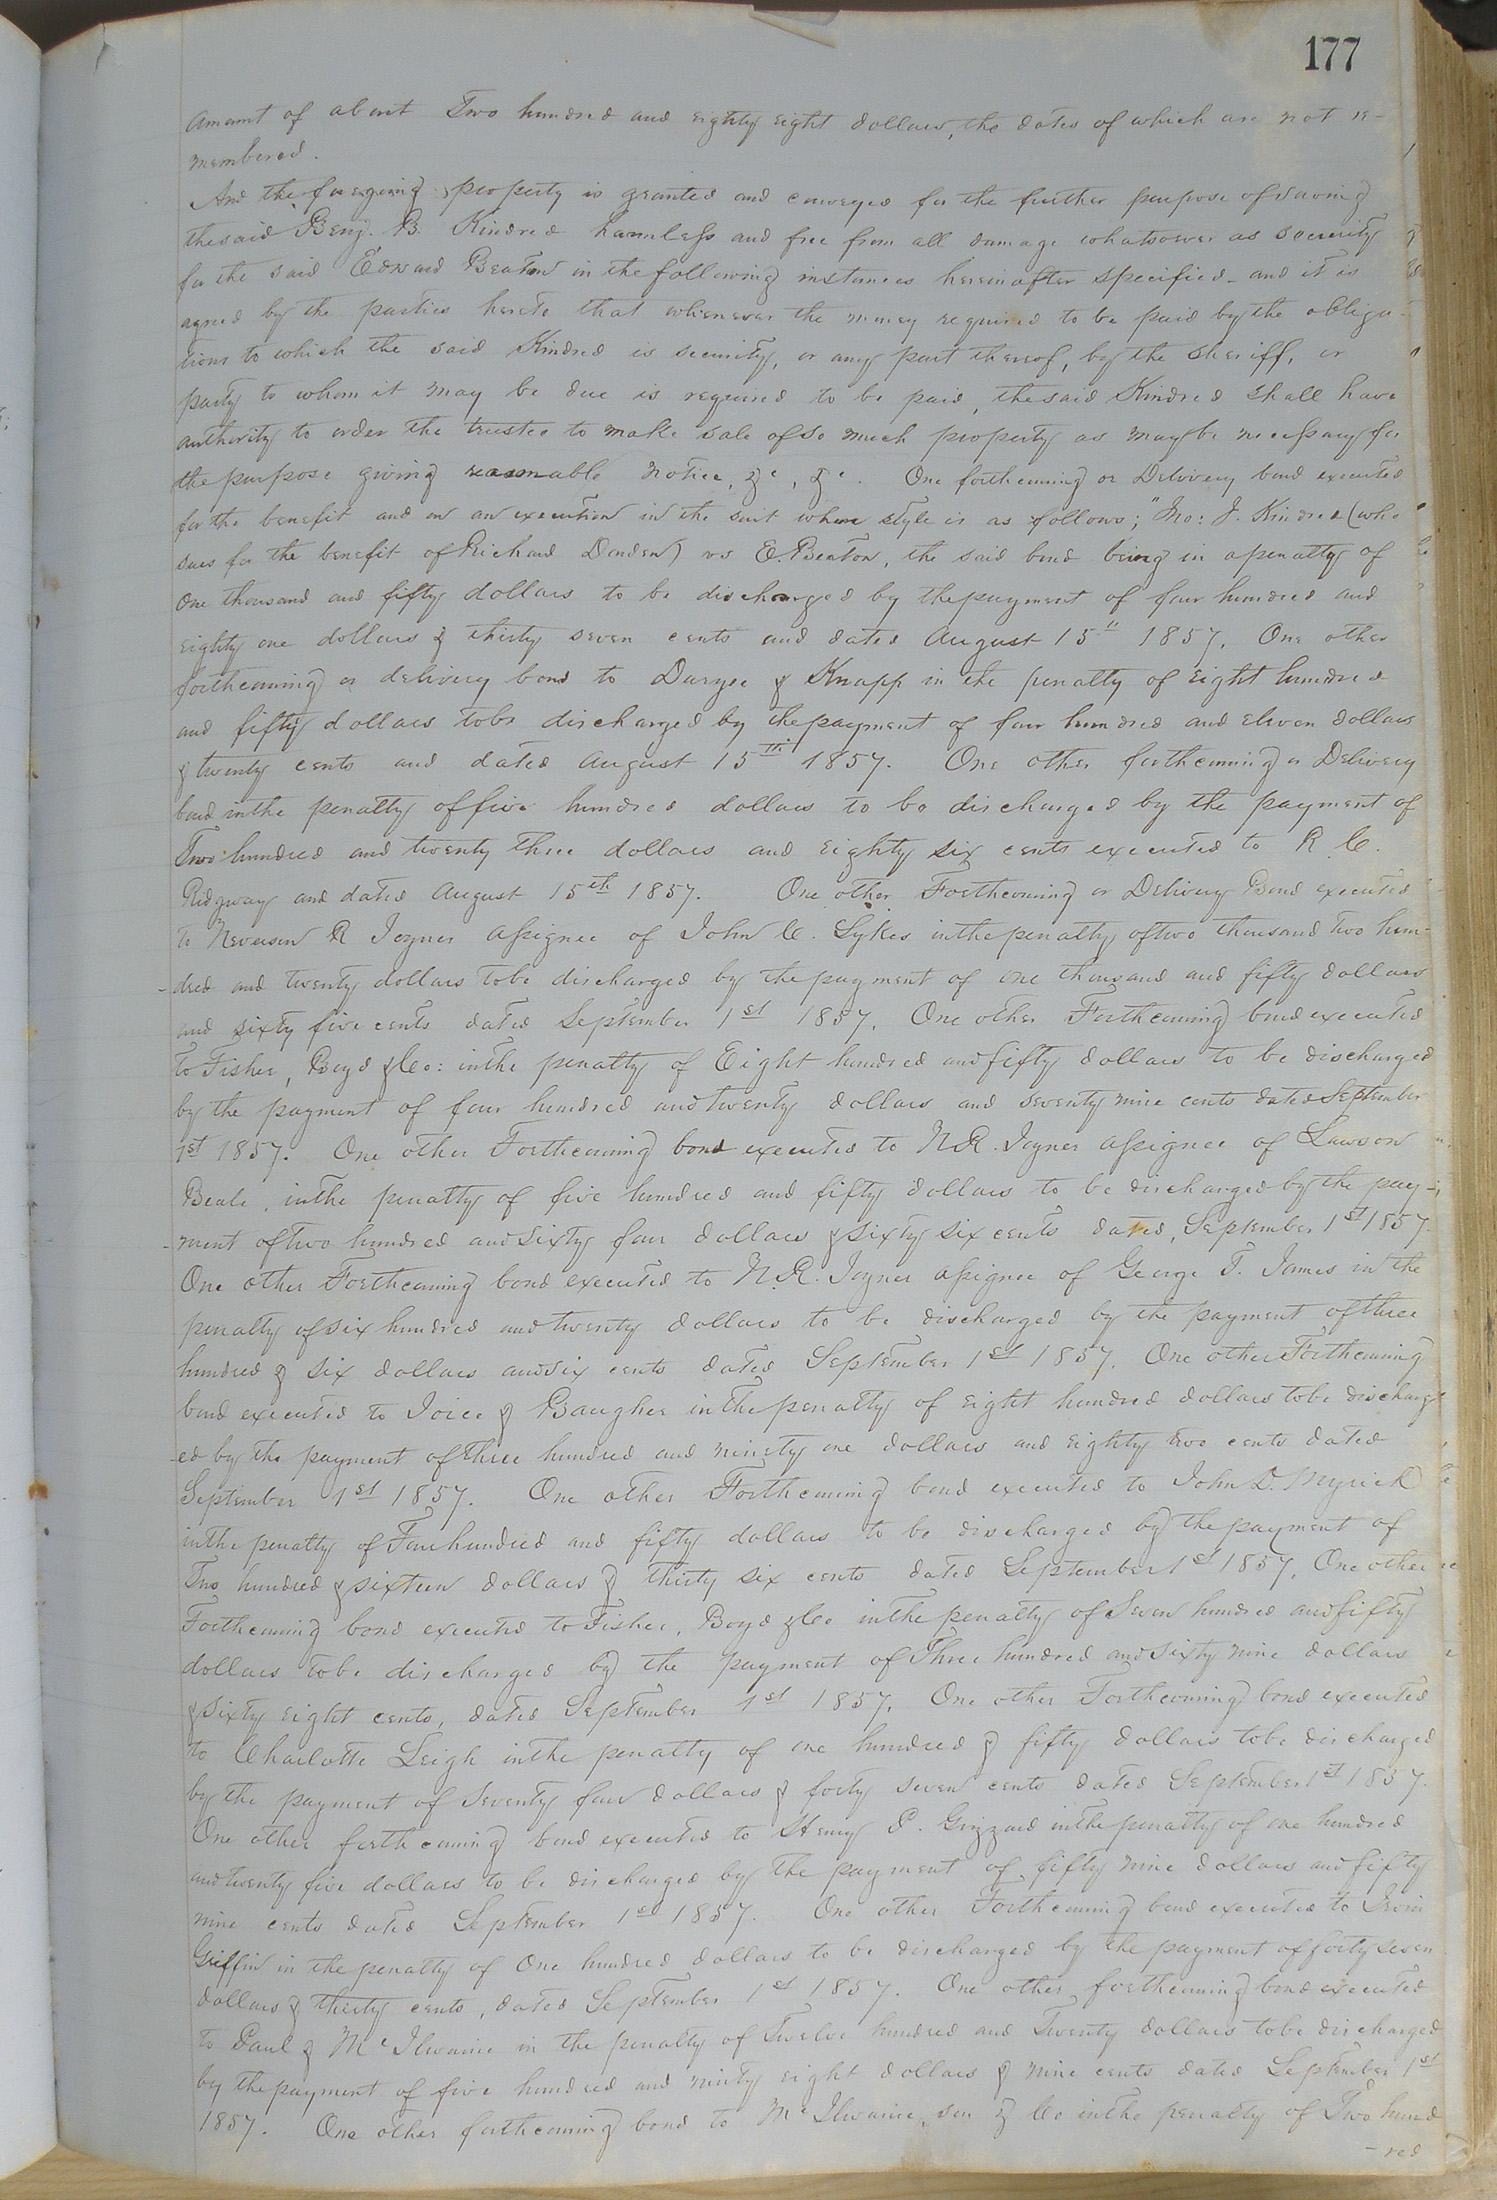 177
amount of about Two hundred and eighty eight dollars, the dates of which are not re-
membered.
And the foregoing property is granted and conveyed for the further purpose of saving
the said Benj. B. Kindred harmless and free from all damage whatsoever as security
for the said Edward Beaton in the following instances hereinafter specified - and it is
agreed by the parties hereto that whenever the money required to be paid by the obliga-
tions to which the said Kindred is security, or any part thereof, by the sheriff, or
party to whom it may be due is required to be paid, the said Kindred shall have
authority to order the trustee to make sale of so much property as may be necessary for
the purpose giving reasonable notice, &c, &c. One forthcoming or Delivery bond executed
for the benefit and on an execution in the suit whose style is as follows; "Jno: J. Kindred (who
sues for the benefit of Richard Darden) vs E. Beaton, the said bond being in a penalty of
One thousand and fifty dollars to be discharged by the payment of four hundred and
eighty one dollars & thirty seven cents and dated August 15" 1857. One other
forthcoming or delivery bond to Duryee & Knapp in the penalty of Eight hundred
and fifty dollars to be discharged by the payment of four hundred and eleven dollars
& twenty cents and dated August 15th 1857. One other forthcoming or Delivery
bond in the penalty of five hundred dollars to be discharged by the payment of
Two hundred and twenty three dollars and Eighty six cents executed to R. C.
Ridgway and dated August 15th 1857. One other Forthcoming or Delivery Bond executed
to Neverson R Joyner assignee of John C. Sykes in the penalty of two thousand two hun-
-dred and twenty dollars to be discharged by the payment of one thousand and fifty dollars
and sixty five cents dated September 1st 1857. One other Forthcoming bond executed
to Fisher, Boyd & Co: in the penalty of Eight hundred and fifty dollars to be discharged
by the payment of four hundred and twenty dollars and seventy nine cents dated September
1st 1857. One other Forthcoming bond executed to N.R. Joyner assignee of Lawson
Beale, in the penalty of five hundred and fifty dollars to be discharged by the pay-
-ment of two hundred and sixty four dollars & sixty six cents dated, September 1st 1857.
One other Forthcoming bond executed to N.R. Joyner assignee of George T. James in the
penalty of six hundred and twenty dollars to be discharged by the payment of three
hundred & six dollars and six cents dated September 1st 1857. One other Forthcoming
bond executed to Joice & Baugher in the penalty of eight hundred dollars to be discharg
-ed by the payment of three hundred and ninety one dollars and eighty two cents dated
September 1st 1857. One other Forthcoming bond executed to John D. Myrick
in the penalty of Four hundred and fifty dollars to be discharged by the payment of
Two hundred & sixteen dollars & thirty six cents dated September 1st 1857. One other
Forthcoming bond executed to Fisher, Boyd & Co in the penalty of Seven hundred and fifty
dollars to be discharged by the payment of Three hundred and sixty nine dollars
& sixty eight cents, dated September 1st 1857. One other Forthcoming bond executed
to Charlotte Leigh in the penalty of one hundred & fifty dollars to be discharged
by the payment of Seventy four dollars & forty seven cents dated September 1st 1857.
One other forthcoming bond executed to Henry P. Grizzard in the penalty of one hundred
and twenty five dollars to be discharged by the payment of fifty nine dollars and fifty
nine cents dated September 1st 1857. One other Forthcoming bond executed to Irvin
Griffin in the penalty of One hundred dollars to be discharged by the payment of forty seven
dollars & thirty cents, dated September 1st 1857. One other forthcoming bond executed
to Paul & McIlwaine in the penalty of Twelve hundred and Twenty dollars to be discharged
by the payment of five hundred and ninty eight dollars & nine cents dated September 1st
1857. One other forthcoming bond to McIlwaine, son & Co in the penalty of Two hund
-red